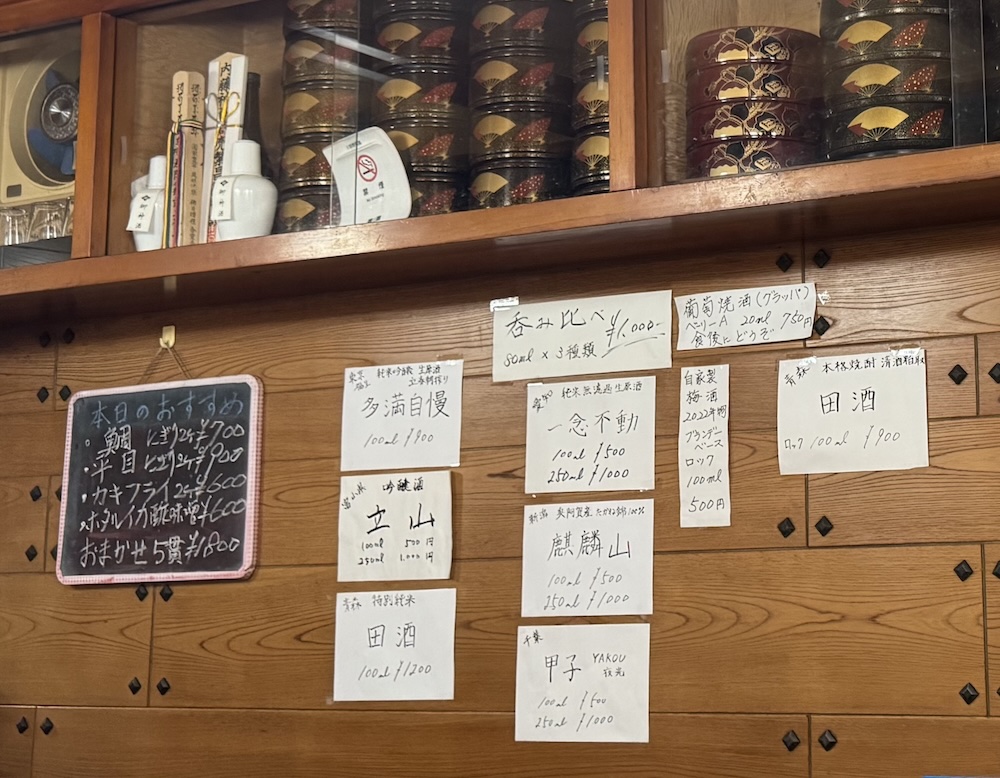 本日のおすすめ
・真鯛 にぎり2ケ¥700
・平目 にぎり2ケ¥900
・カキフライ2ケ¥600
・ホタルイカ酢味噌¥600
おまかせ5貫¥1800
東京
純米吟醸 生原酒
多満自慢
100ml ¥900
富山県 吟醸酒
立山
100ml 500円
250ml 1.000円
青森 特別純米
田酒
100ml ¥1200
呑み比べ ¥1.000-
80ml × 3種類
純米無濾過生原酒
一念不動
100ml ¥500
250ml ¥1000
新潟 奥阿賀産 たかね錦100%
麒麟山
100ml ¥500
250ml ¥1000
千葉
甲子 YAKOU
夜光
100ml ¥500
250ml ¥1000
葡萄焼酒(グラッパ)
ベリーA 20ml 750円
食後にどうぞ
自家製
梅酒
2022年
ブランデー
ベース
ロック
100ml
500円
青森 本格焼酎 清酒粕取
田酒
ロック 100ml ¥900
御神酒
御神酒
禁煙